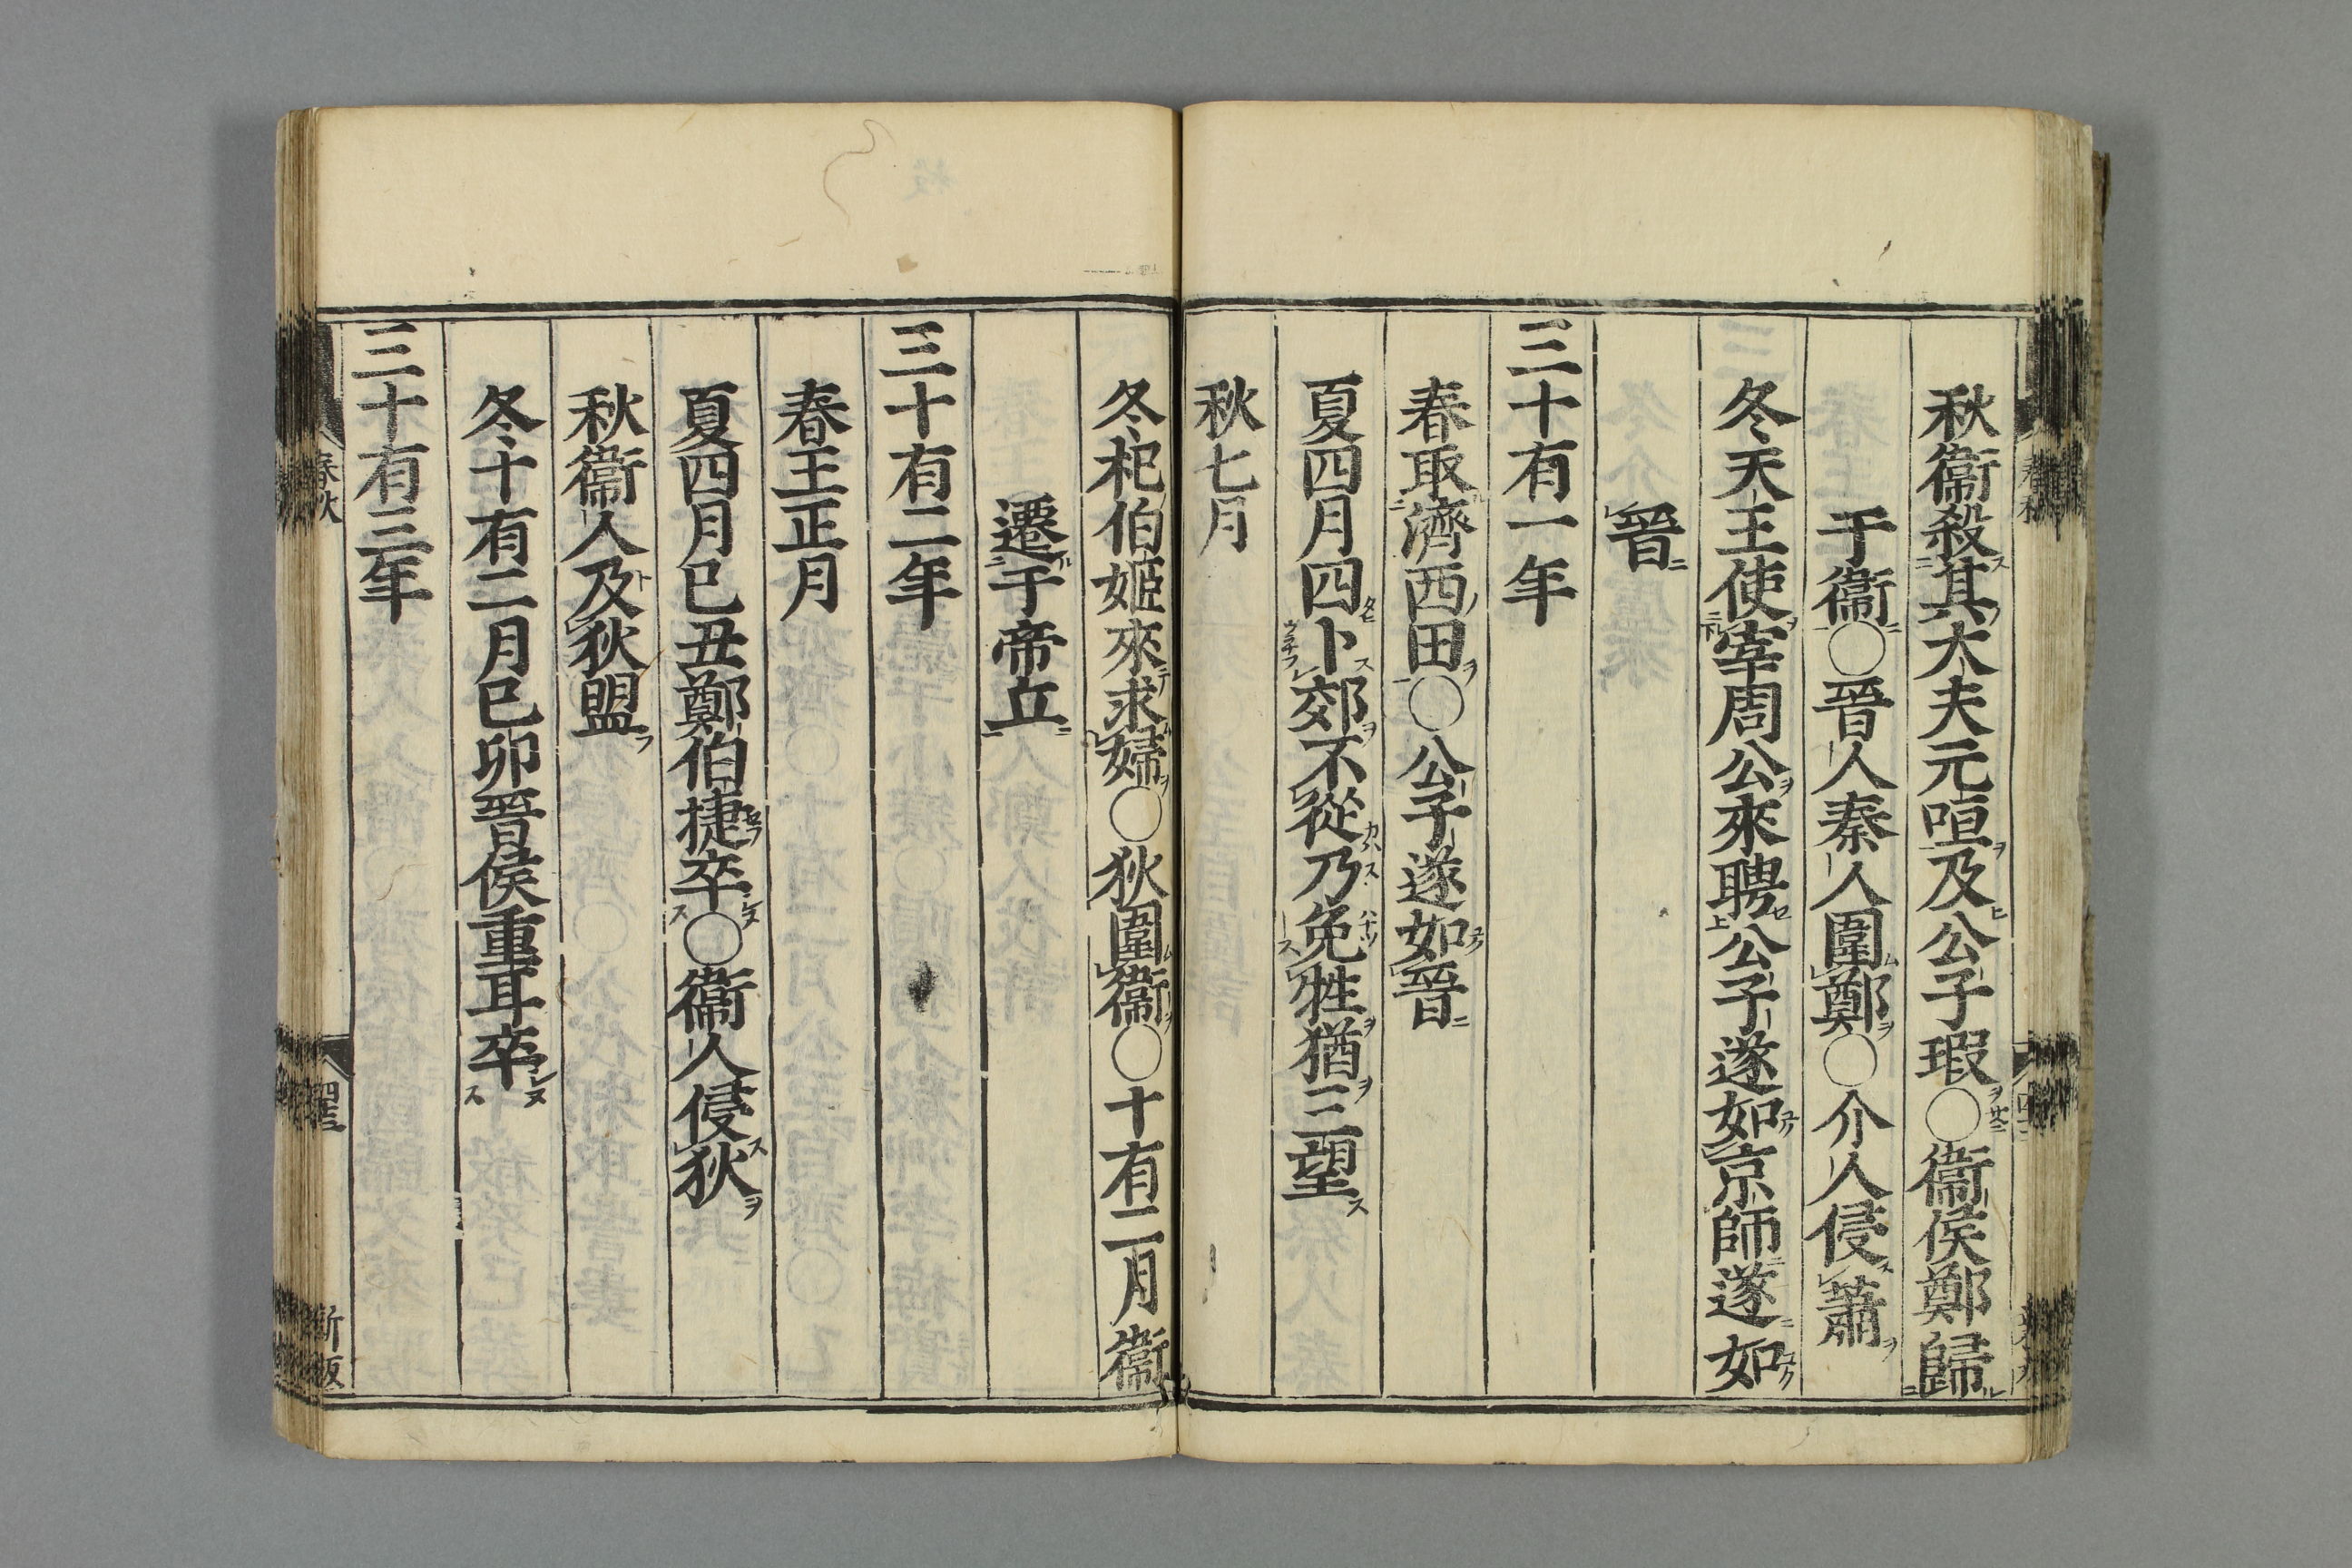 秋衞殺其大夫元咺及公子瑕○衞侯鄭歸
于衞○晉人秦人圍鄭○介人侵蕭
冬天王使宰周公來聘公子遂如京師遂如
晉
三十有一年
春取濟西田○公子遂如晉
夏四月四卜郊不從乃免牲猶三望
秋七月
冬杞伯姬來求婦○狄圍衞○十有二月衞
遷于帝丘
三十有二年
春王正月
夏四月己丑鄭伯捷卒○衞人侵狄
秋衞人及狄盟
冬十有二月己卯晉侯重耳卒
三十有三年
春秋
新板